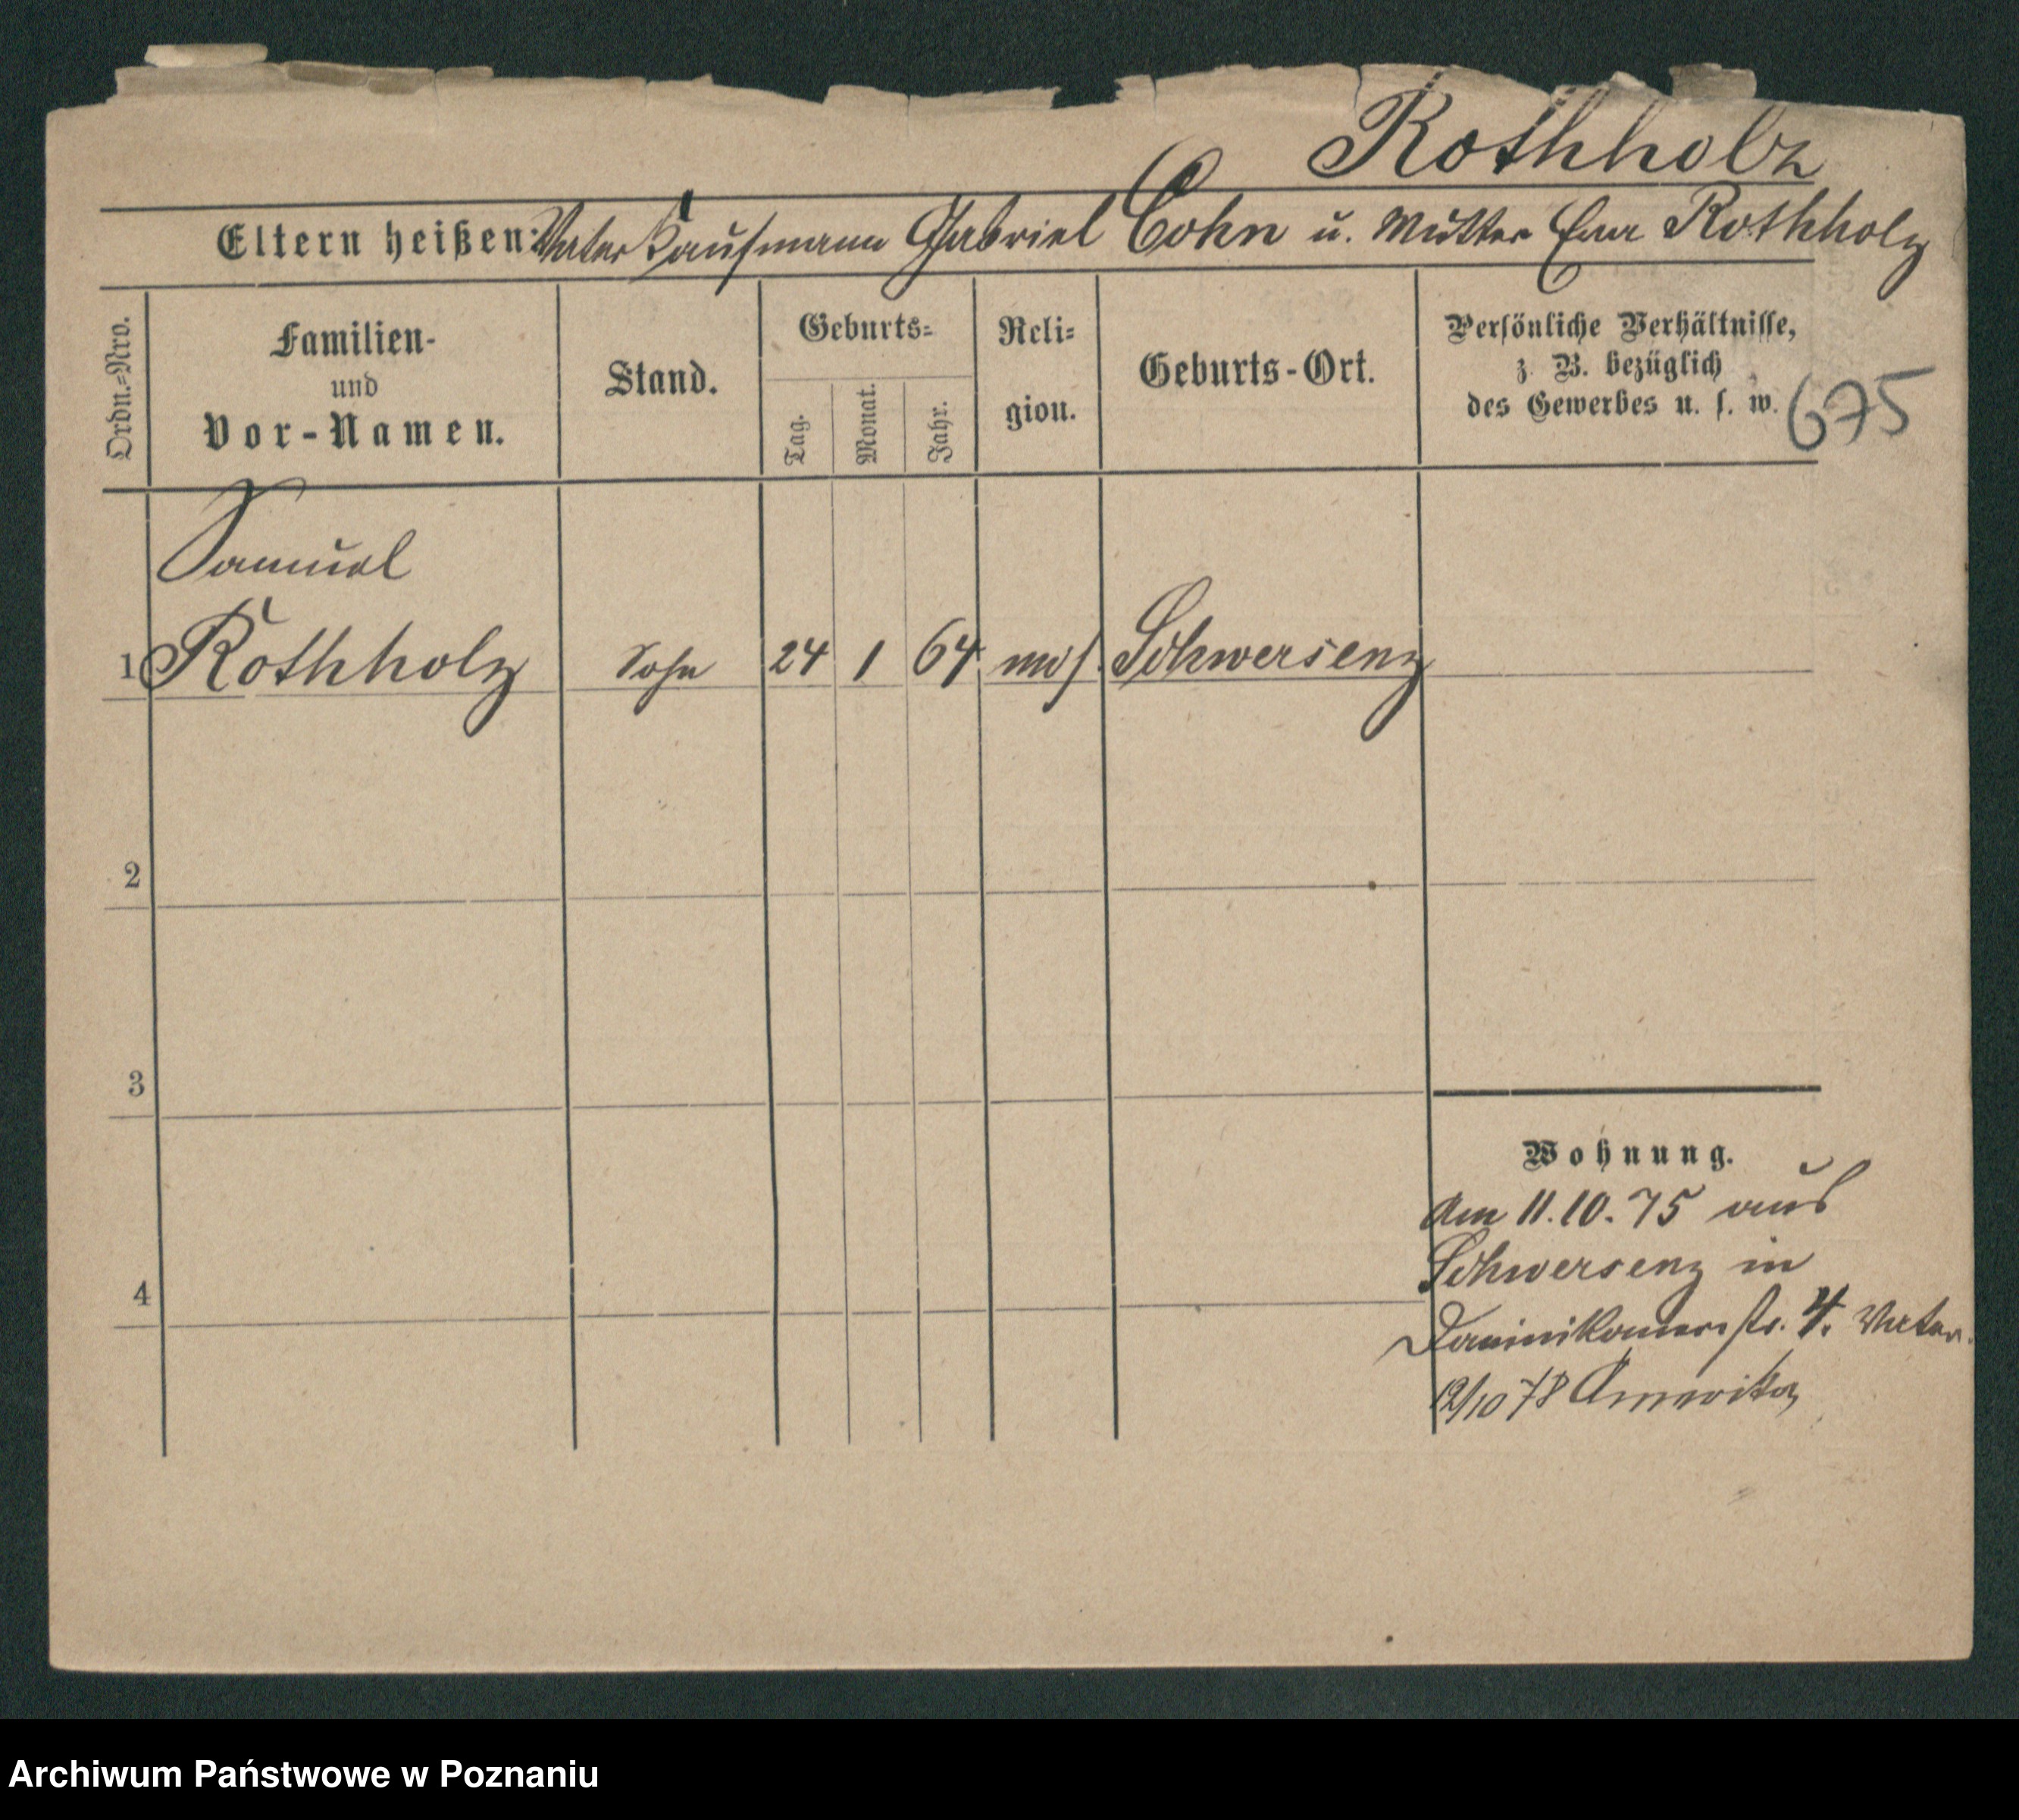 Rothholz
Eltern heißen: Vater Kaufmann Gabriel Cohn u. Mutter Eva Rothholz
Ordn.=Nro.
Familien-
und
Vor-Namen.
Stand.
Geburts=
Tag.
Monat.
Jahr.
Reli=
gion.
Geburts-Ort.
Persönliche Verhältnisse,
z. B. bezüglich
des Gewerbes u. s. w.
675
Samuel
1 Rothholz Sohn 24 1 64 mos. Schwersenz
2
3
4
Wohnung.
Am 11.10.75 aus
Schwersenz in
Dominikanerstr. 4. Vater.
12/10 78 Amerika
Archiwum Państwowe w Poznaniu